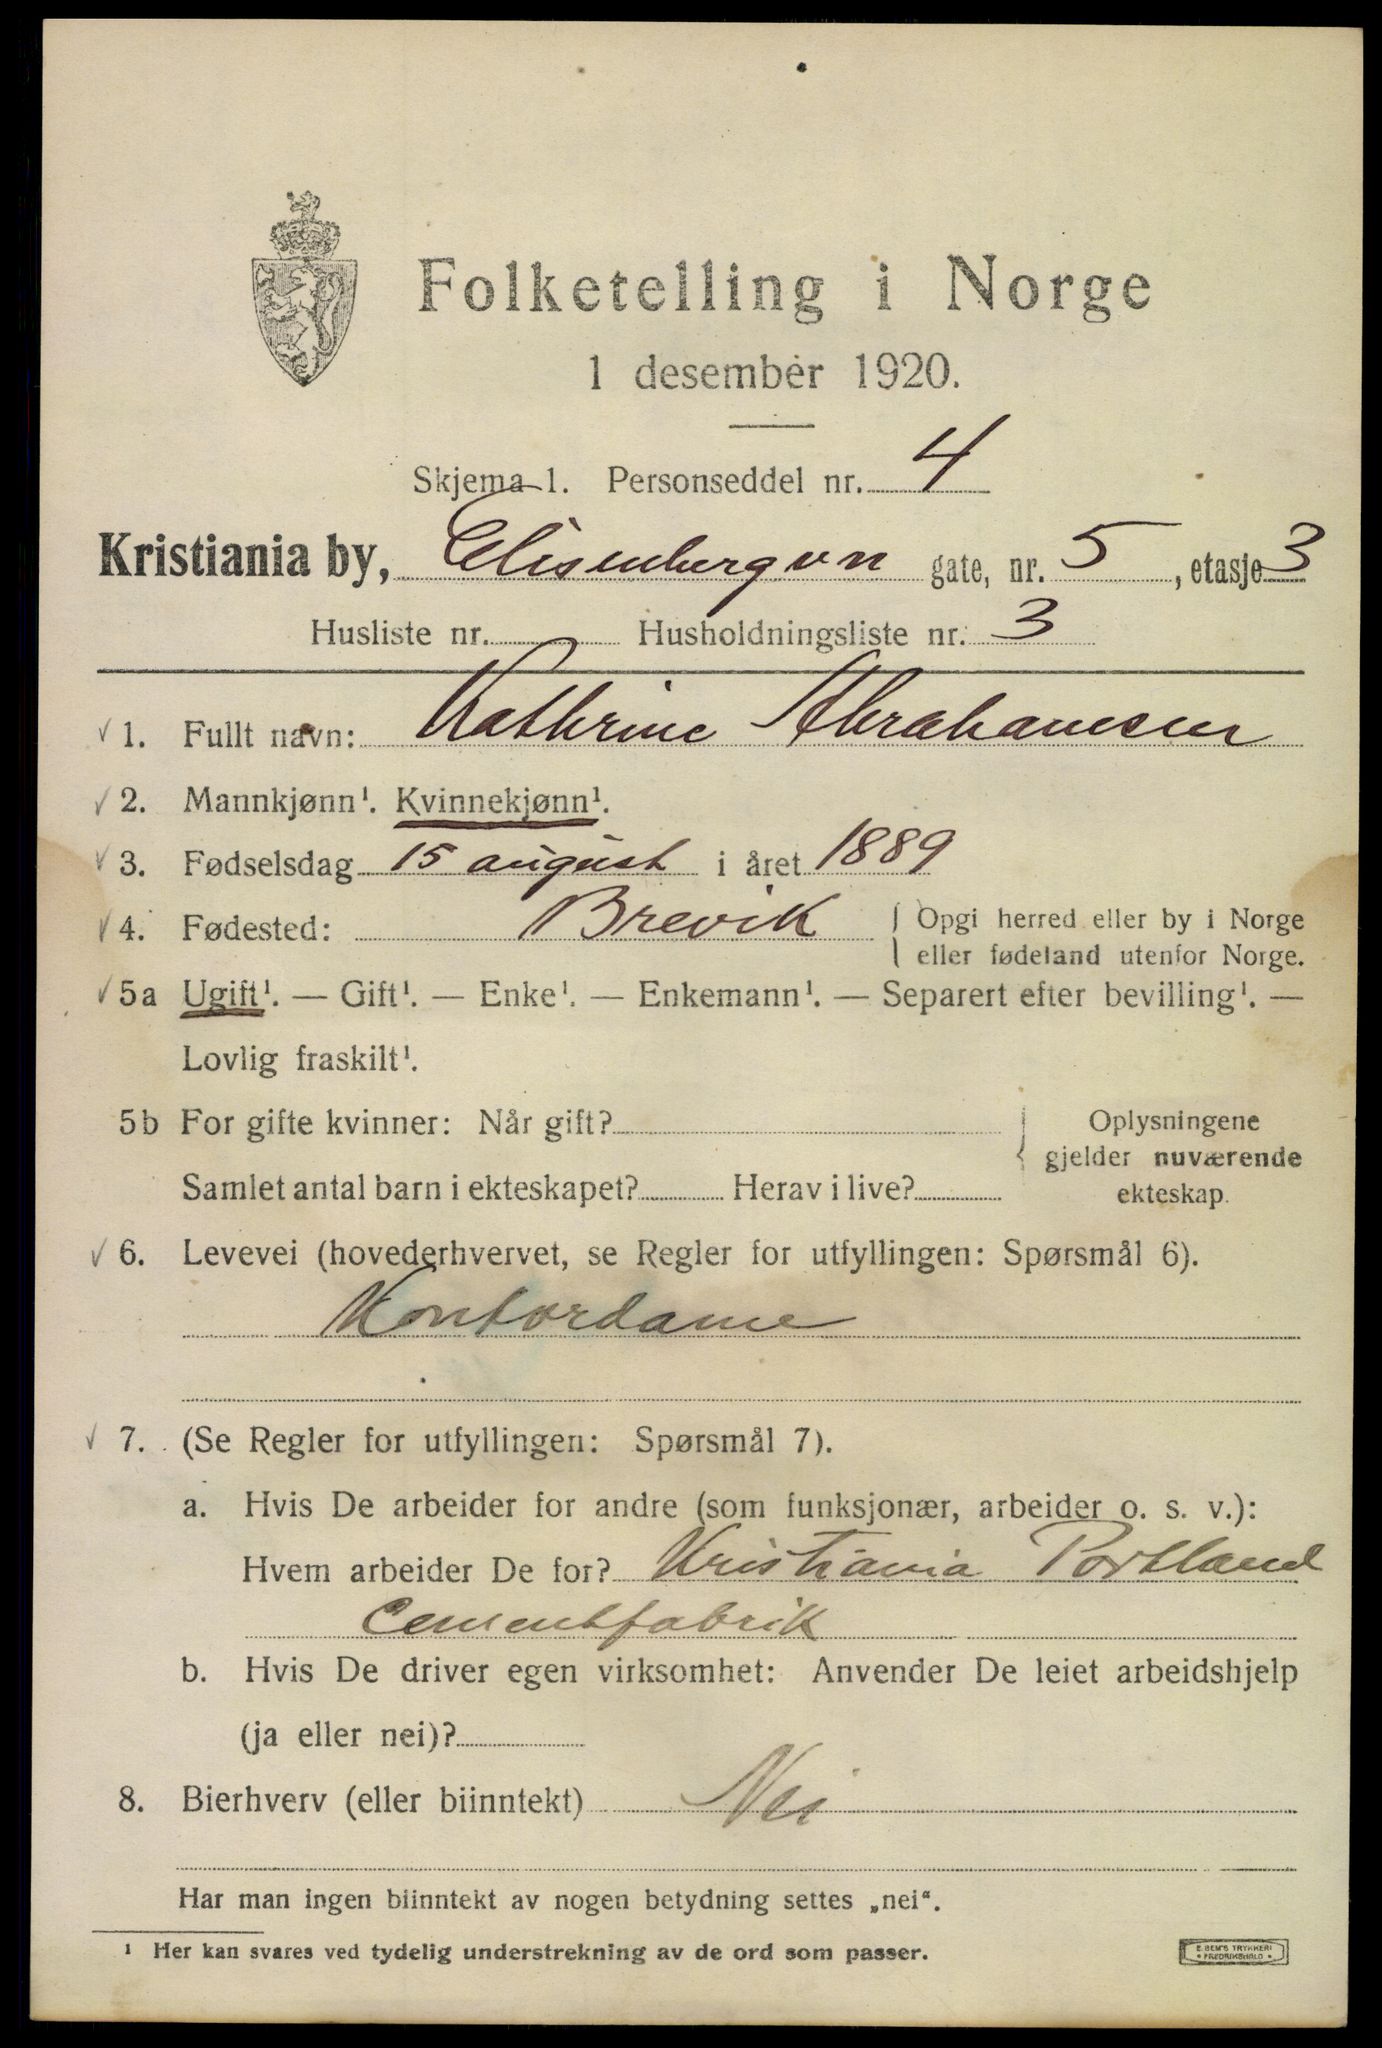 Folketelling i Norge
1 desember 1920.
Skjema 1. Personseddel nr. 4
Kristiania by, Elisenbergvn gate, nr. 5, etasje 3
Husliste nr. Husholdningsliste nr. 3
1. Fullt navn: Kathrine Abrahamsen
2. Mannkjønn¹. Kvinnekjønn¹.
3. Fødselsdag 15 august i året 1889
4. Fødested: Brevik { Opgi herred eller by i Norge
eller fødeland utenfor Norge.
5a Ugift¹. — Gift¹. — Enke¹. — Enkemann¹. — Separert efter bevilling¹. —
Lovlig fraskilt¹.
5b For gifte kvinner: Når gift? { Oplysningene
gjelder nuværende
Samlet antal barn i ekteskapet? Herav i live? ekteskap.
6. Levevei (hovederhvervet, se Regler for utfyllingen: Spørsmål 6).
Kontordame
7. (Se Regler for utfyllingen: Spørsmål 7).
a. Hvis De arbeider for andre (som funksjonær, arbeider o. s. v.):
Hvem arbeider De for? Kristiania Portland
Cementfabrik
b. Hvis De driver egen virksomhet: Anvender De leiet arbeidshjelp
(ja eller nei)?
8. Bierhverv (eller biinntekt) Nei
Har man ingen biinntekt av nogen betydning settes „nei“.
¹ Her kan svares ved tydelig understrekning av de ord som passer.
E. SEM'S TRYKKERI
• FREDRIKSHALD •